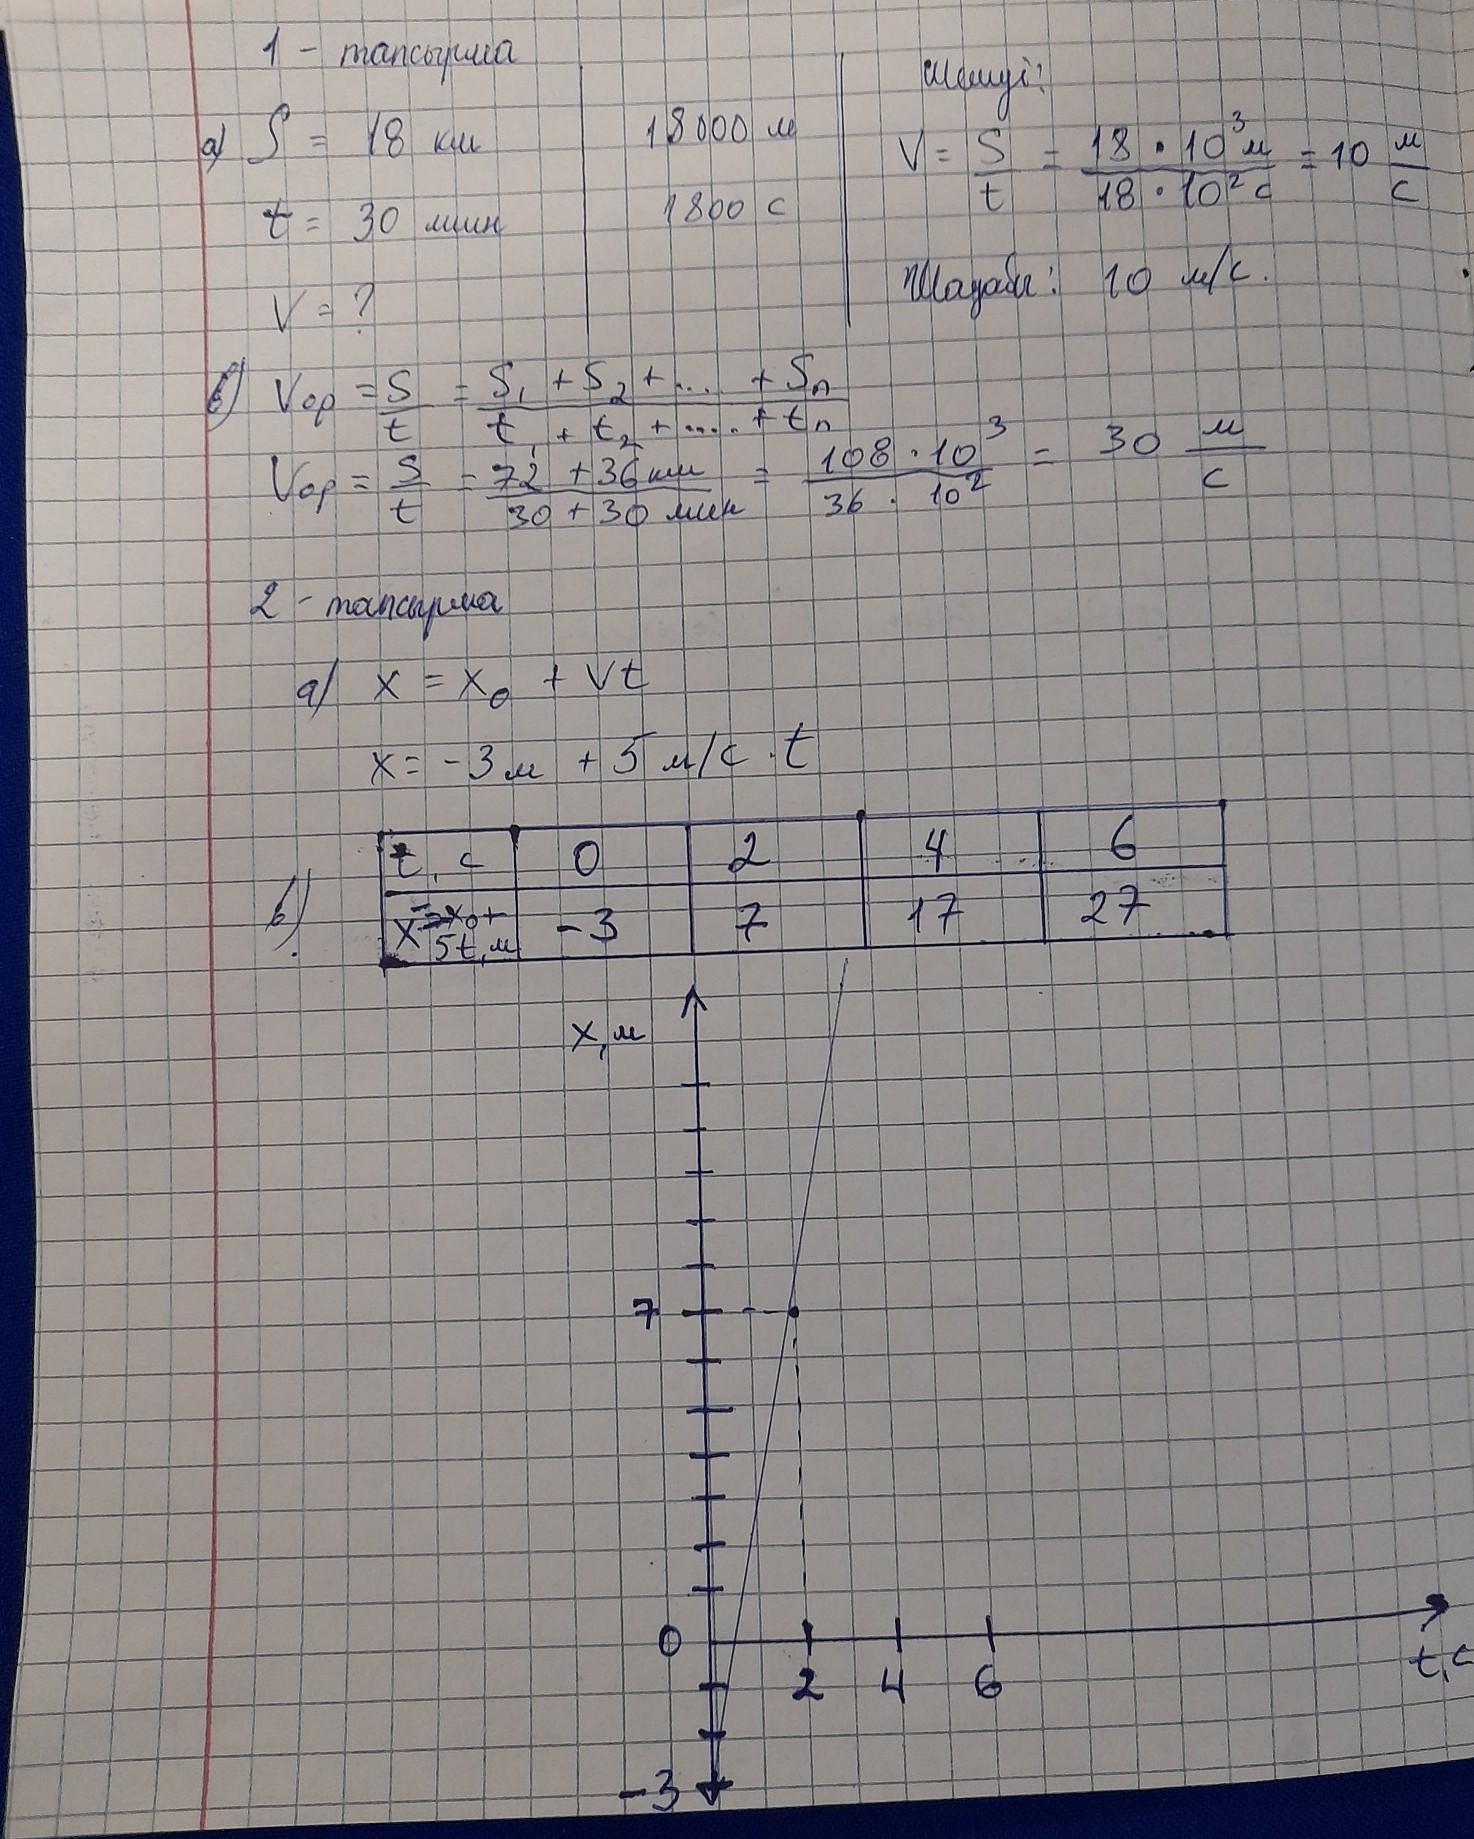 1 - тапсырма
а) S = 18 км 18000 м
t = 30 мин 1800 с
V = ?
Шешуі:
V = S/t = 18 · 10³ м / 18 · 10² с = 10 м/с
Жауабы: 10 м/с.
б) Vор = S/t = S₁ + S₂ + .... + Sn / t₁ + t₂ + ..... + tn
Vор = S/t = 72 + 36 км / 30 + 30 мин = 108 · 10³ / 36 · 10² = 30 м/с
2 - тапсырма
а) x = x₀ + Vt
x = -3м + 5 м/с · t
б)
t, с 0 2 4 6
x = x₀ + 5t, м -3 7 17 27
x, м
7
0 2 4 6 t, с
-3